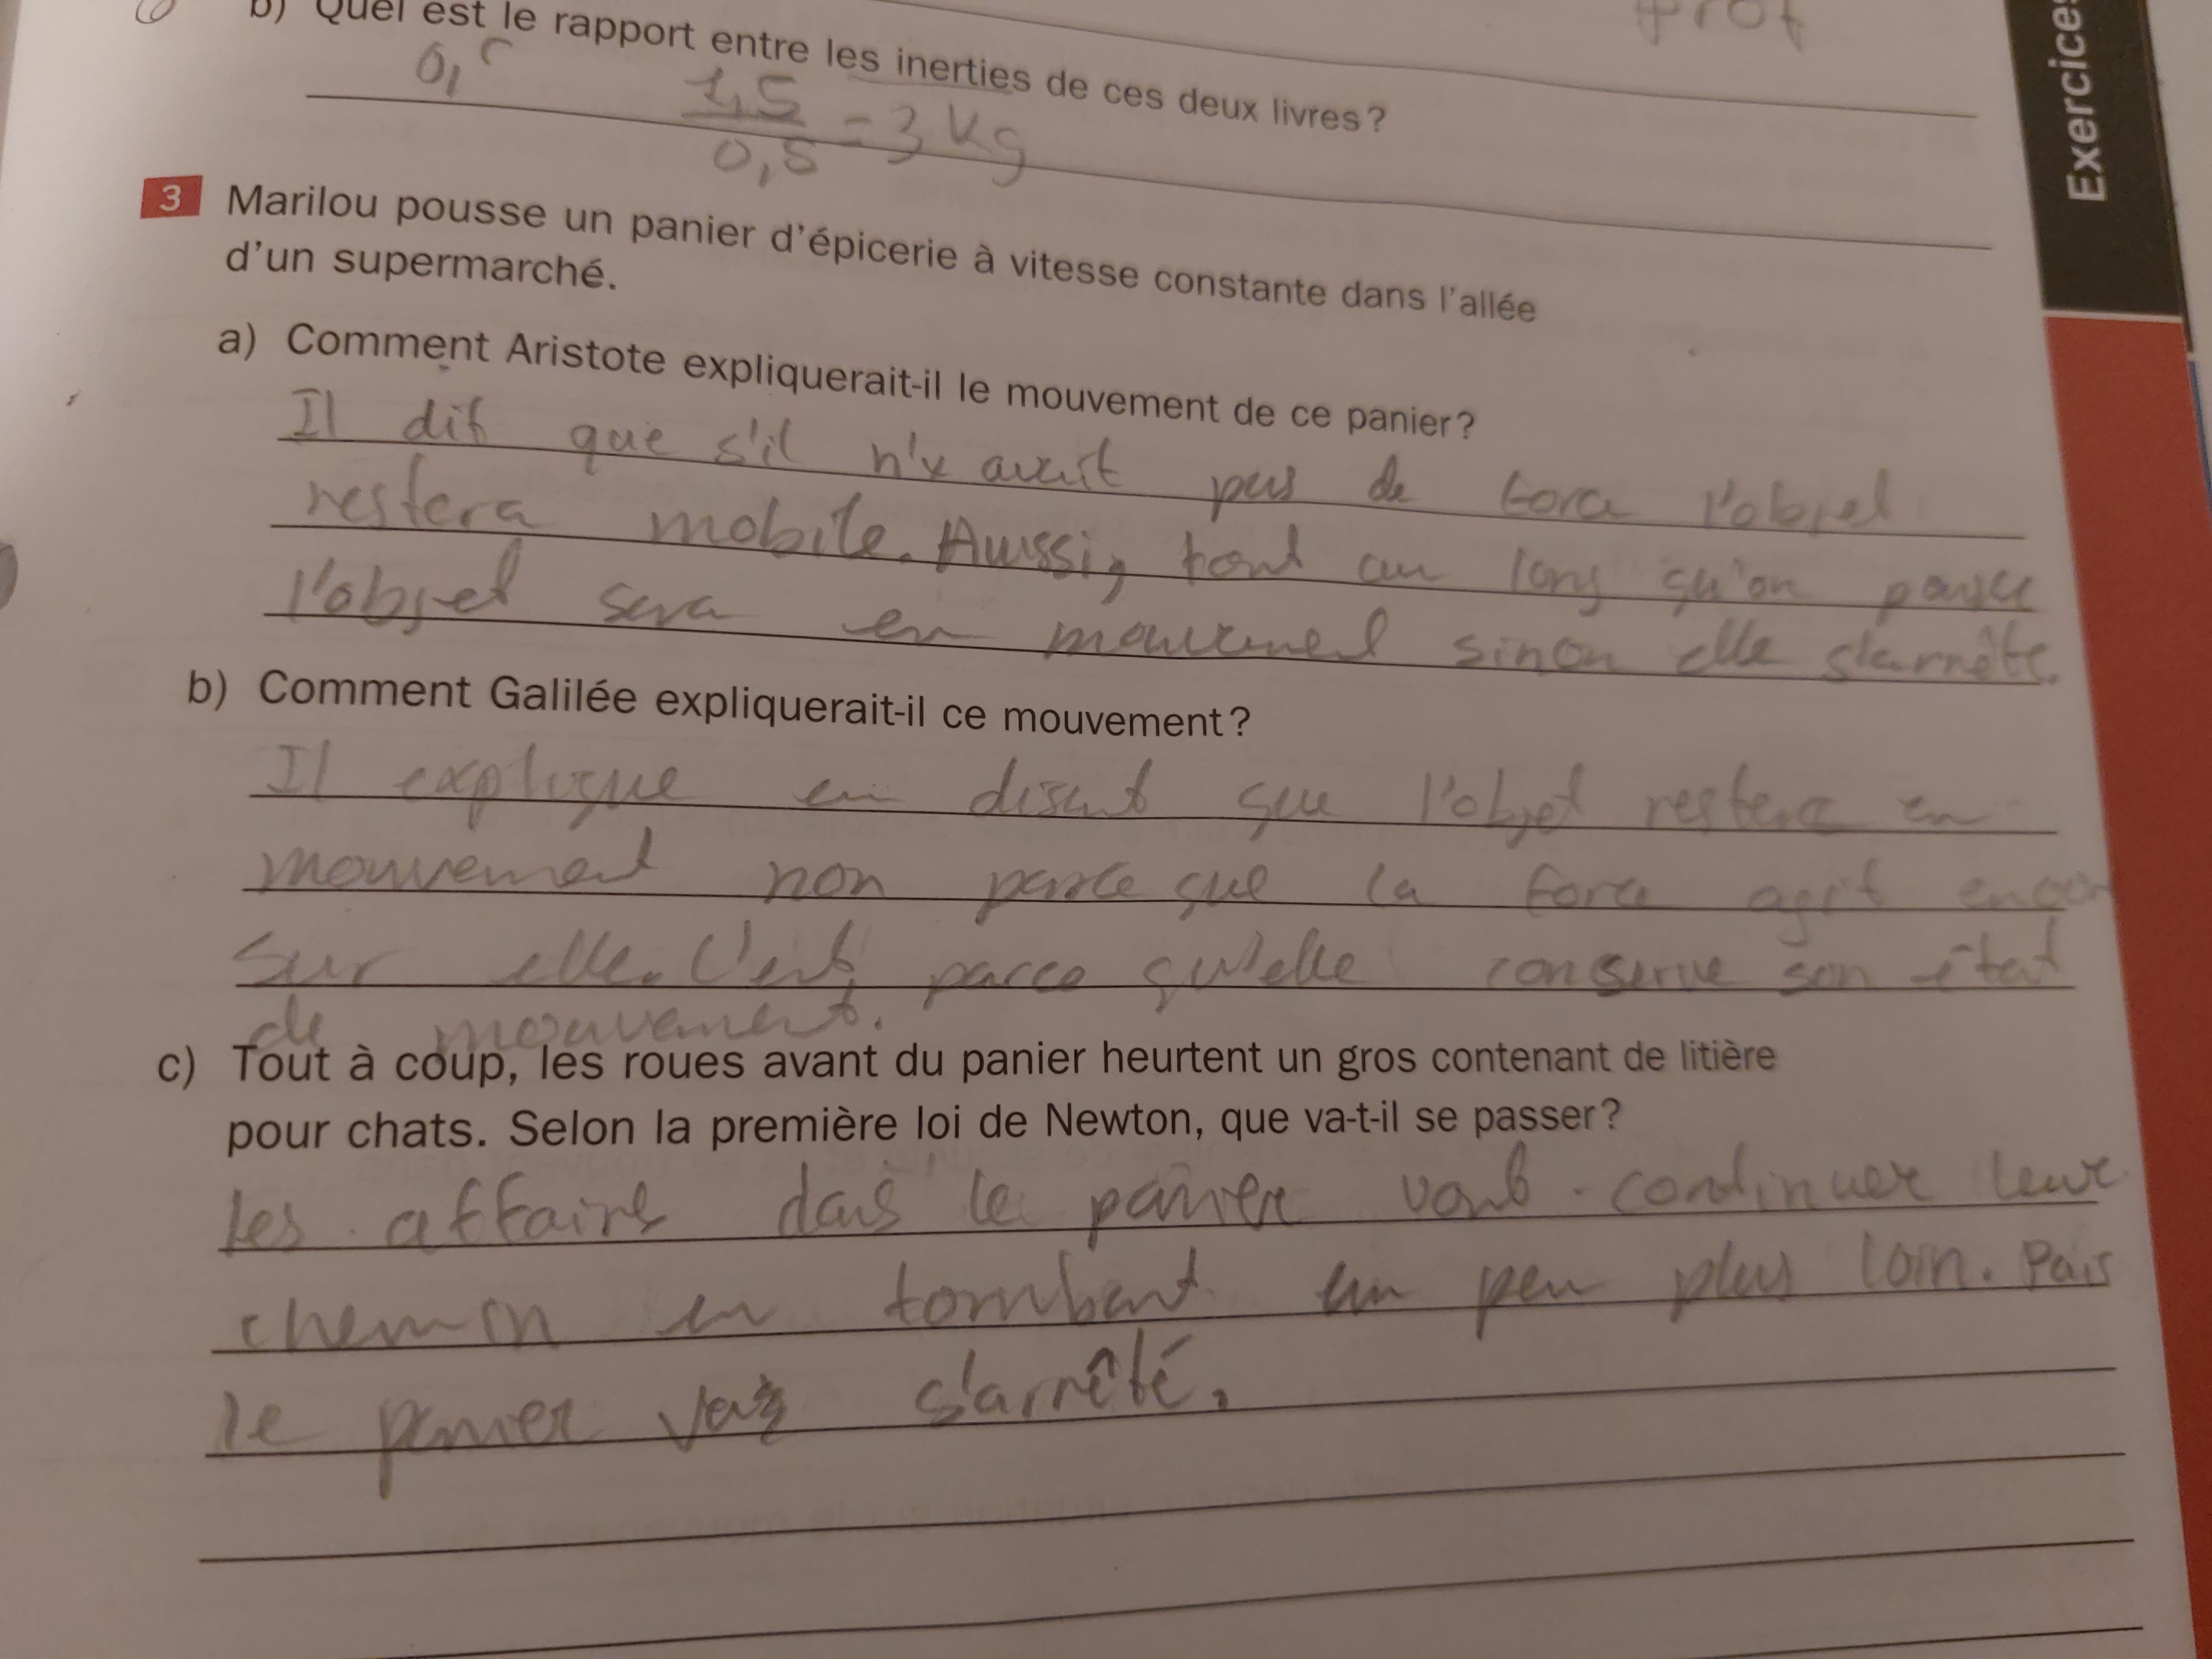 prof
b) Quel est le rapport entre les inerties de ces deux livres ?
0,5
1,5
0,5 = 3 kg
Exercices
3 Marilou pousse un panier d'épicerie à vitesse constante dans l'allée
d'un supermarché.
a) Comment Aristote expliquerait-il le mouvement de ce panier ?
Il dit que s'il n'y avait pas de force l'objet
restera mobile. Aussi, tout au long qu'on pousse
l'objet sera en mouvement sinon elle s'arrête.
b) Comment Galilée expliquerait-il ce mouvement ?
Il explique en disant que l'objet restera en
mouvement non parce que la force agit encor
sur elle. C'est parce qu'elle conserve son état
de mouvement.
c) Tout à coup, les roues avant du panier heurtent un gros contenant de litière
pour chats. Selon la première loi de Newton, que va-t-il se passer ?
Les affaires dans le panier vont continuer leur
chemin en tombant un peu plus loin. Puis
le panier va s'arrêté.